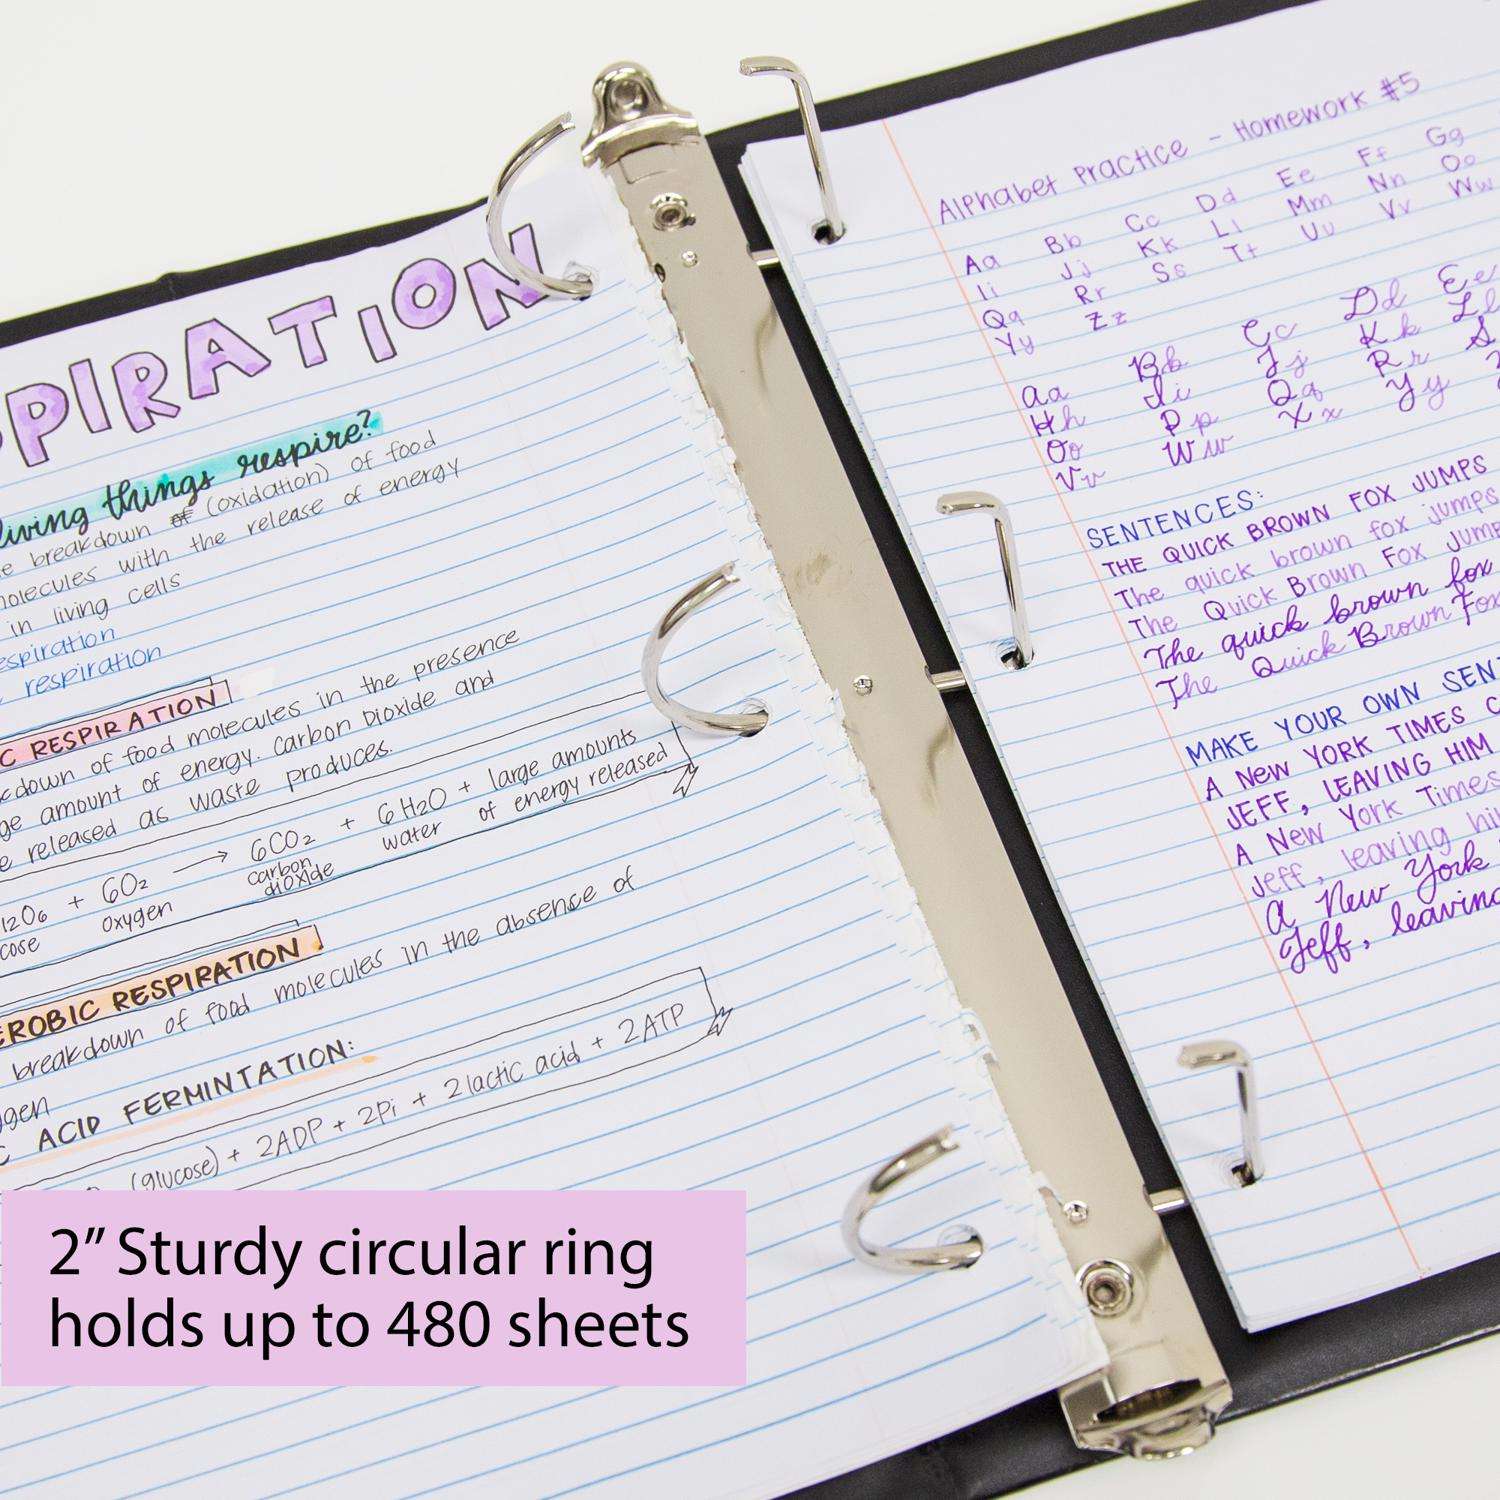 PIRATION
living things respire?
breakdown of (oxidation) of food
molecules with the release of energy
in living cells
respiration
respiration
C RESPIRATION
down of food molecules in the presence
amount of energy. Carbon Dioxide and
released as waste produces.
12O6 + 6O2 → 6CO2 + 6H2O + large amounts
oxygen carbon dioxide water of energy released
EROBIC RESPIRATION
breakdown of food molecules in the absence of
ACID FERMINTATION:
(glucose) + 2ADP + 2Pi + 2 lactic acid + 2ATP
2” Sturdy circular ring
holds up to 480 sheets
Alphabet Practice - Homework #5
Aa Bb Cc Dd Ee Ff Gg
Ii Jj Kk Ll Mm Nn Oo
Qq Rr Ss Tt Uu Vv Ww
Yy Zz
Aa Bb Cc Dd Ee
Hh Ii Jj Kk Ll
Oo Pp Qq Rr S
Vv Ww Xx Yy
SENTENCES:
THE QUICK BROWN FOX JUMPS
The quick brown fox jumps
The Quick Brown Fox Jump
The quick brown fox
The Quick Brown Fox
MAKE YOUR OWN SEN
A NEW YORK TIMES C
JEFF, LEAVING HIM
A New York Times
Jeff, leaving hi
A New York
Jeff, leaving